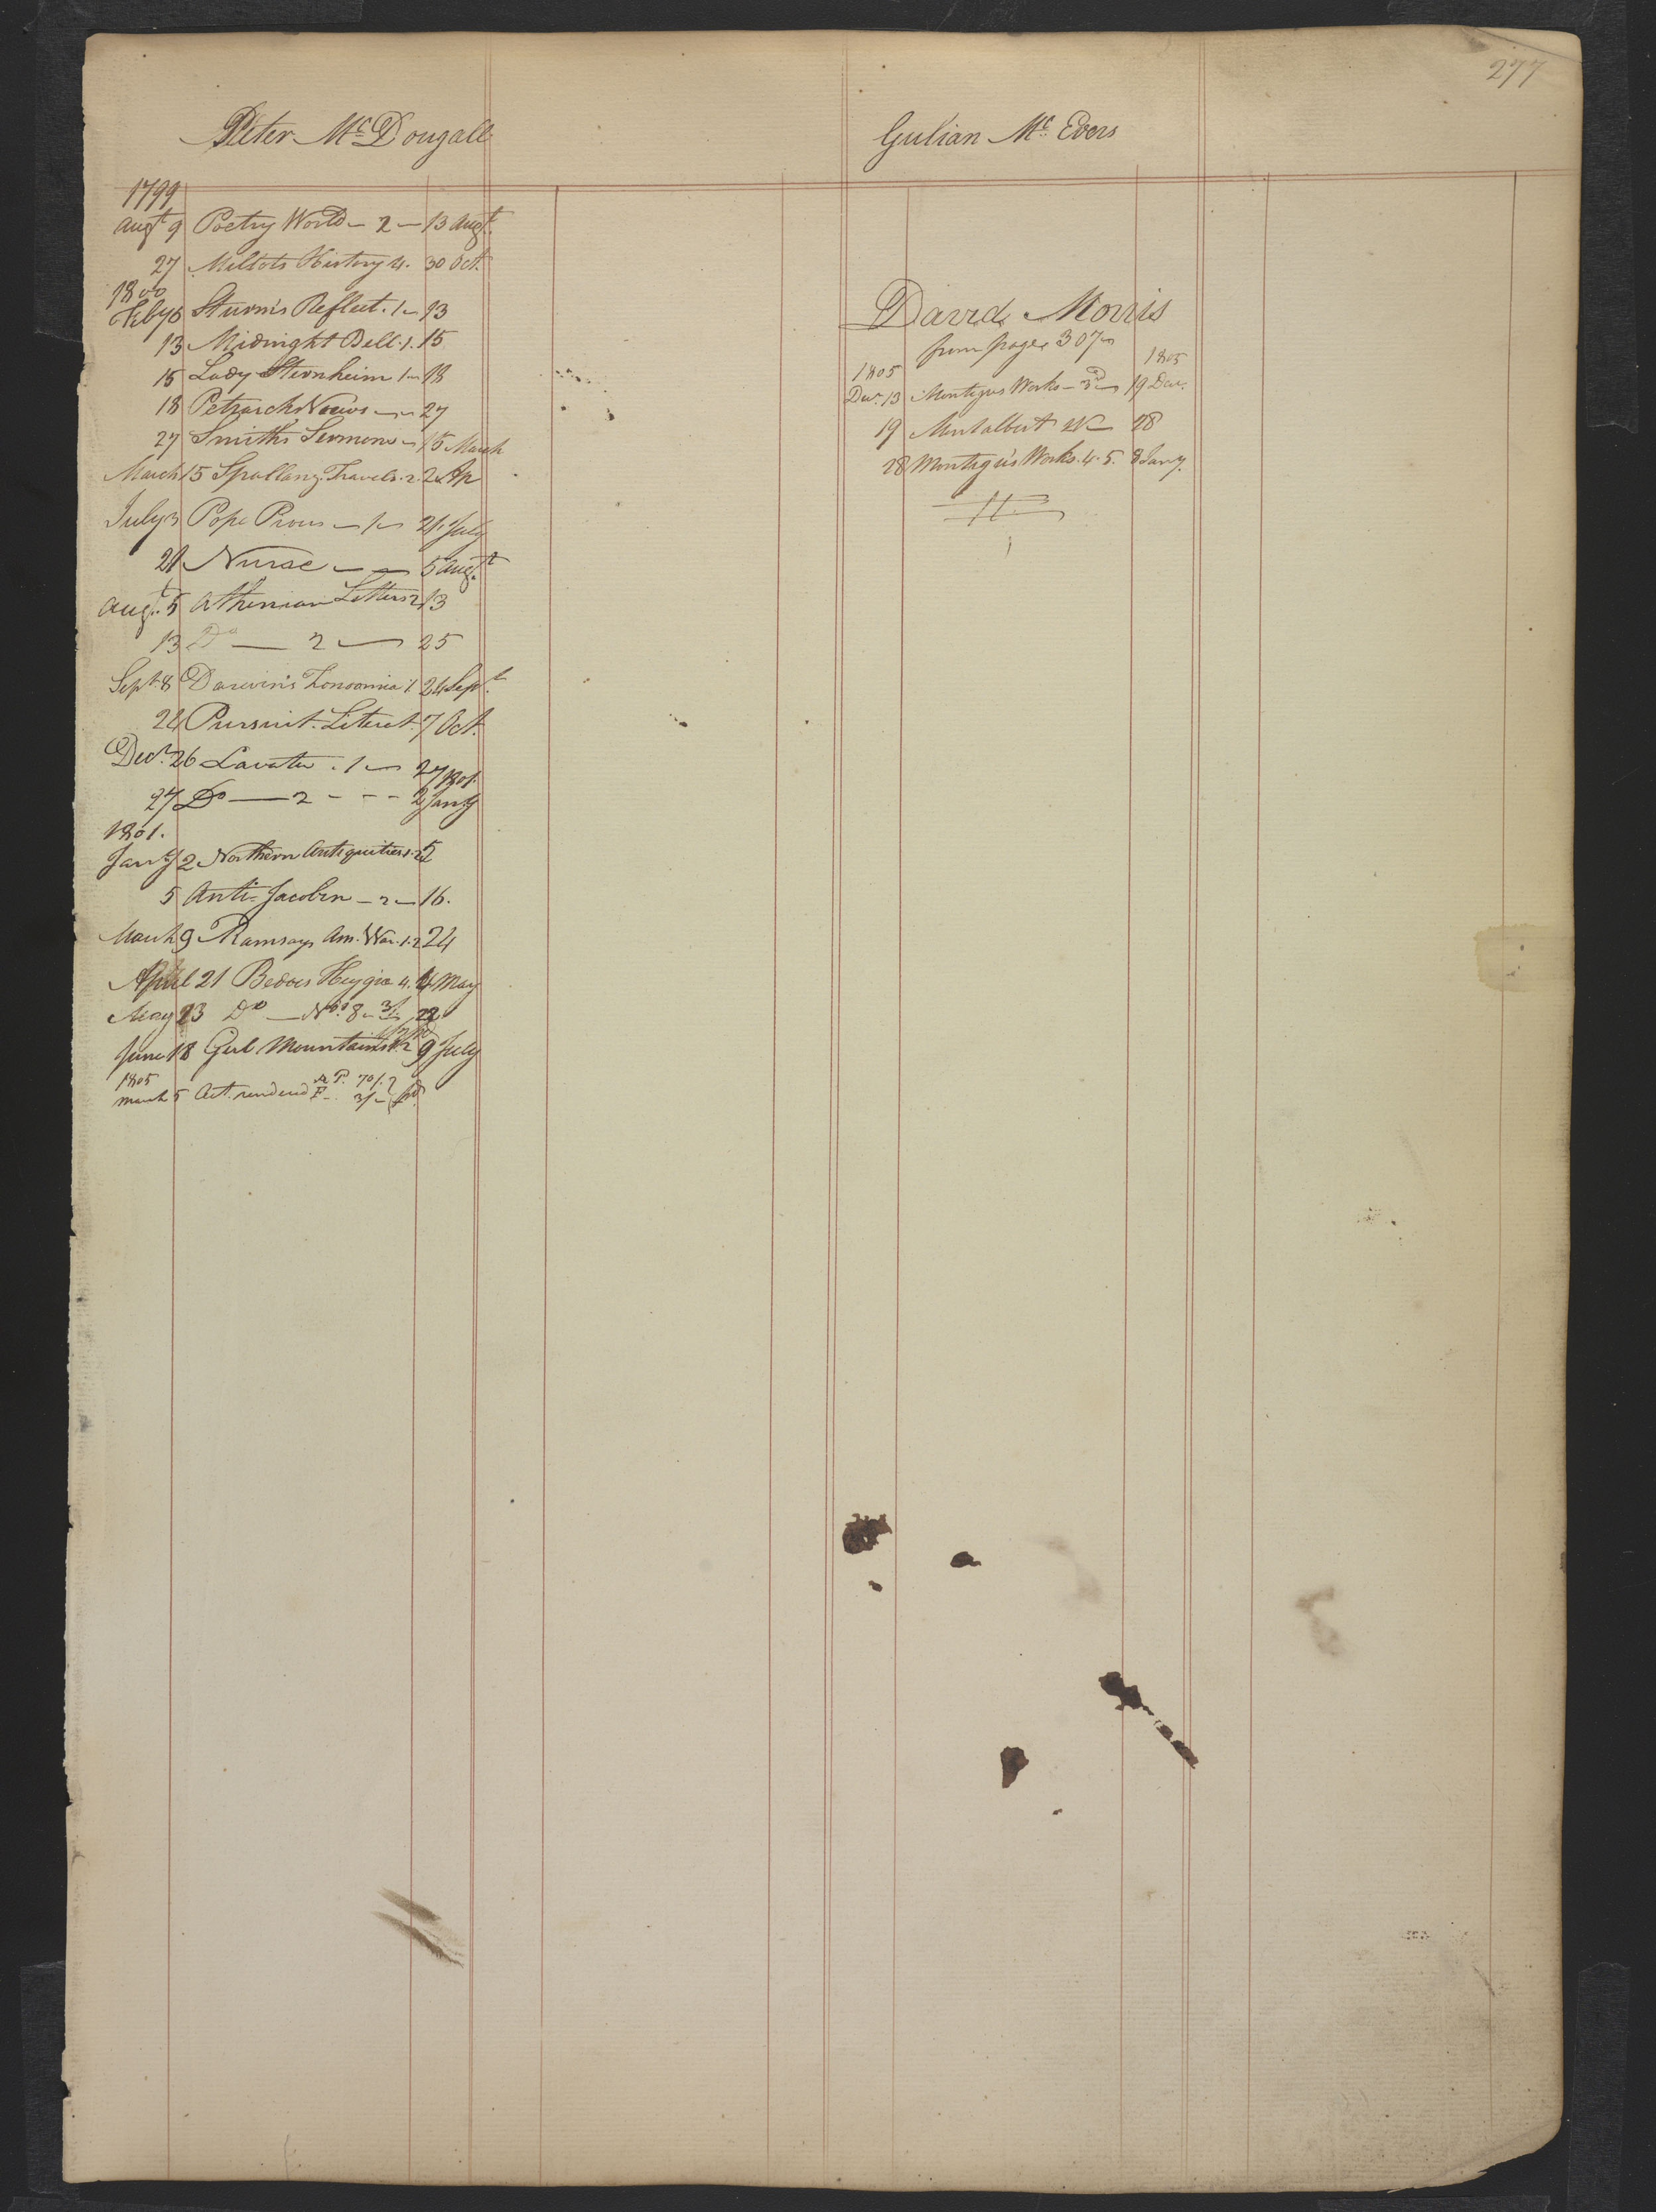 277
Peter McDougall
1799
Augt 9 Poetry World - 2 - 13 Augt
27 Millots History 4. 30 Oct.
1800
Feby 6 Sturm's Reflect. 1 - 13
13 Midnight Bell. 1. 15
15 Lady Sternheim 1 - 18
18 Petrarchs Views - 27
27 Smiths Sermons - 15 March
March 15 Spallanz. Travels. 2. 24 Ap
July 3 Pope Pious - 1 - 21 July
21 Nurse - - 5 Augt
Augt. 5 Athenian Letters 2 13
13 Do - 2 - 25
Sept. 8 Darwin's Zonoomia 1 24 Sept.
24 Pursuit. Literat. 7 Oct.
Decr. 26 Lavater. 1 - 27
1801.
27 Do - 2 - - - 2 Jany
1801.
Jany 2 Northern Antiquities 1.2 5
5 Anti-Jacobin - 2 - 16.
March 9 Ramsays Am. War. 1.2 24
April 21 Bedoes Heygia 4. 4 May
May 23 Do - No. 8 - 3/ 22
June 18 Girl Mountains 1.2 9 July
1805
March 5 Act. rendered P. 70/.
F - 3/- pd.
Gulian Mc. Evers
David Morris
from page 307
1805 1805
Decr. 13 Montagus Works - 3d - 19 Decr.
19 Montalbert 28
28 Montagu's Works. 4. 5. 8 Jany.